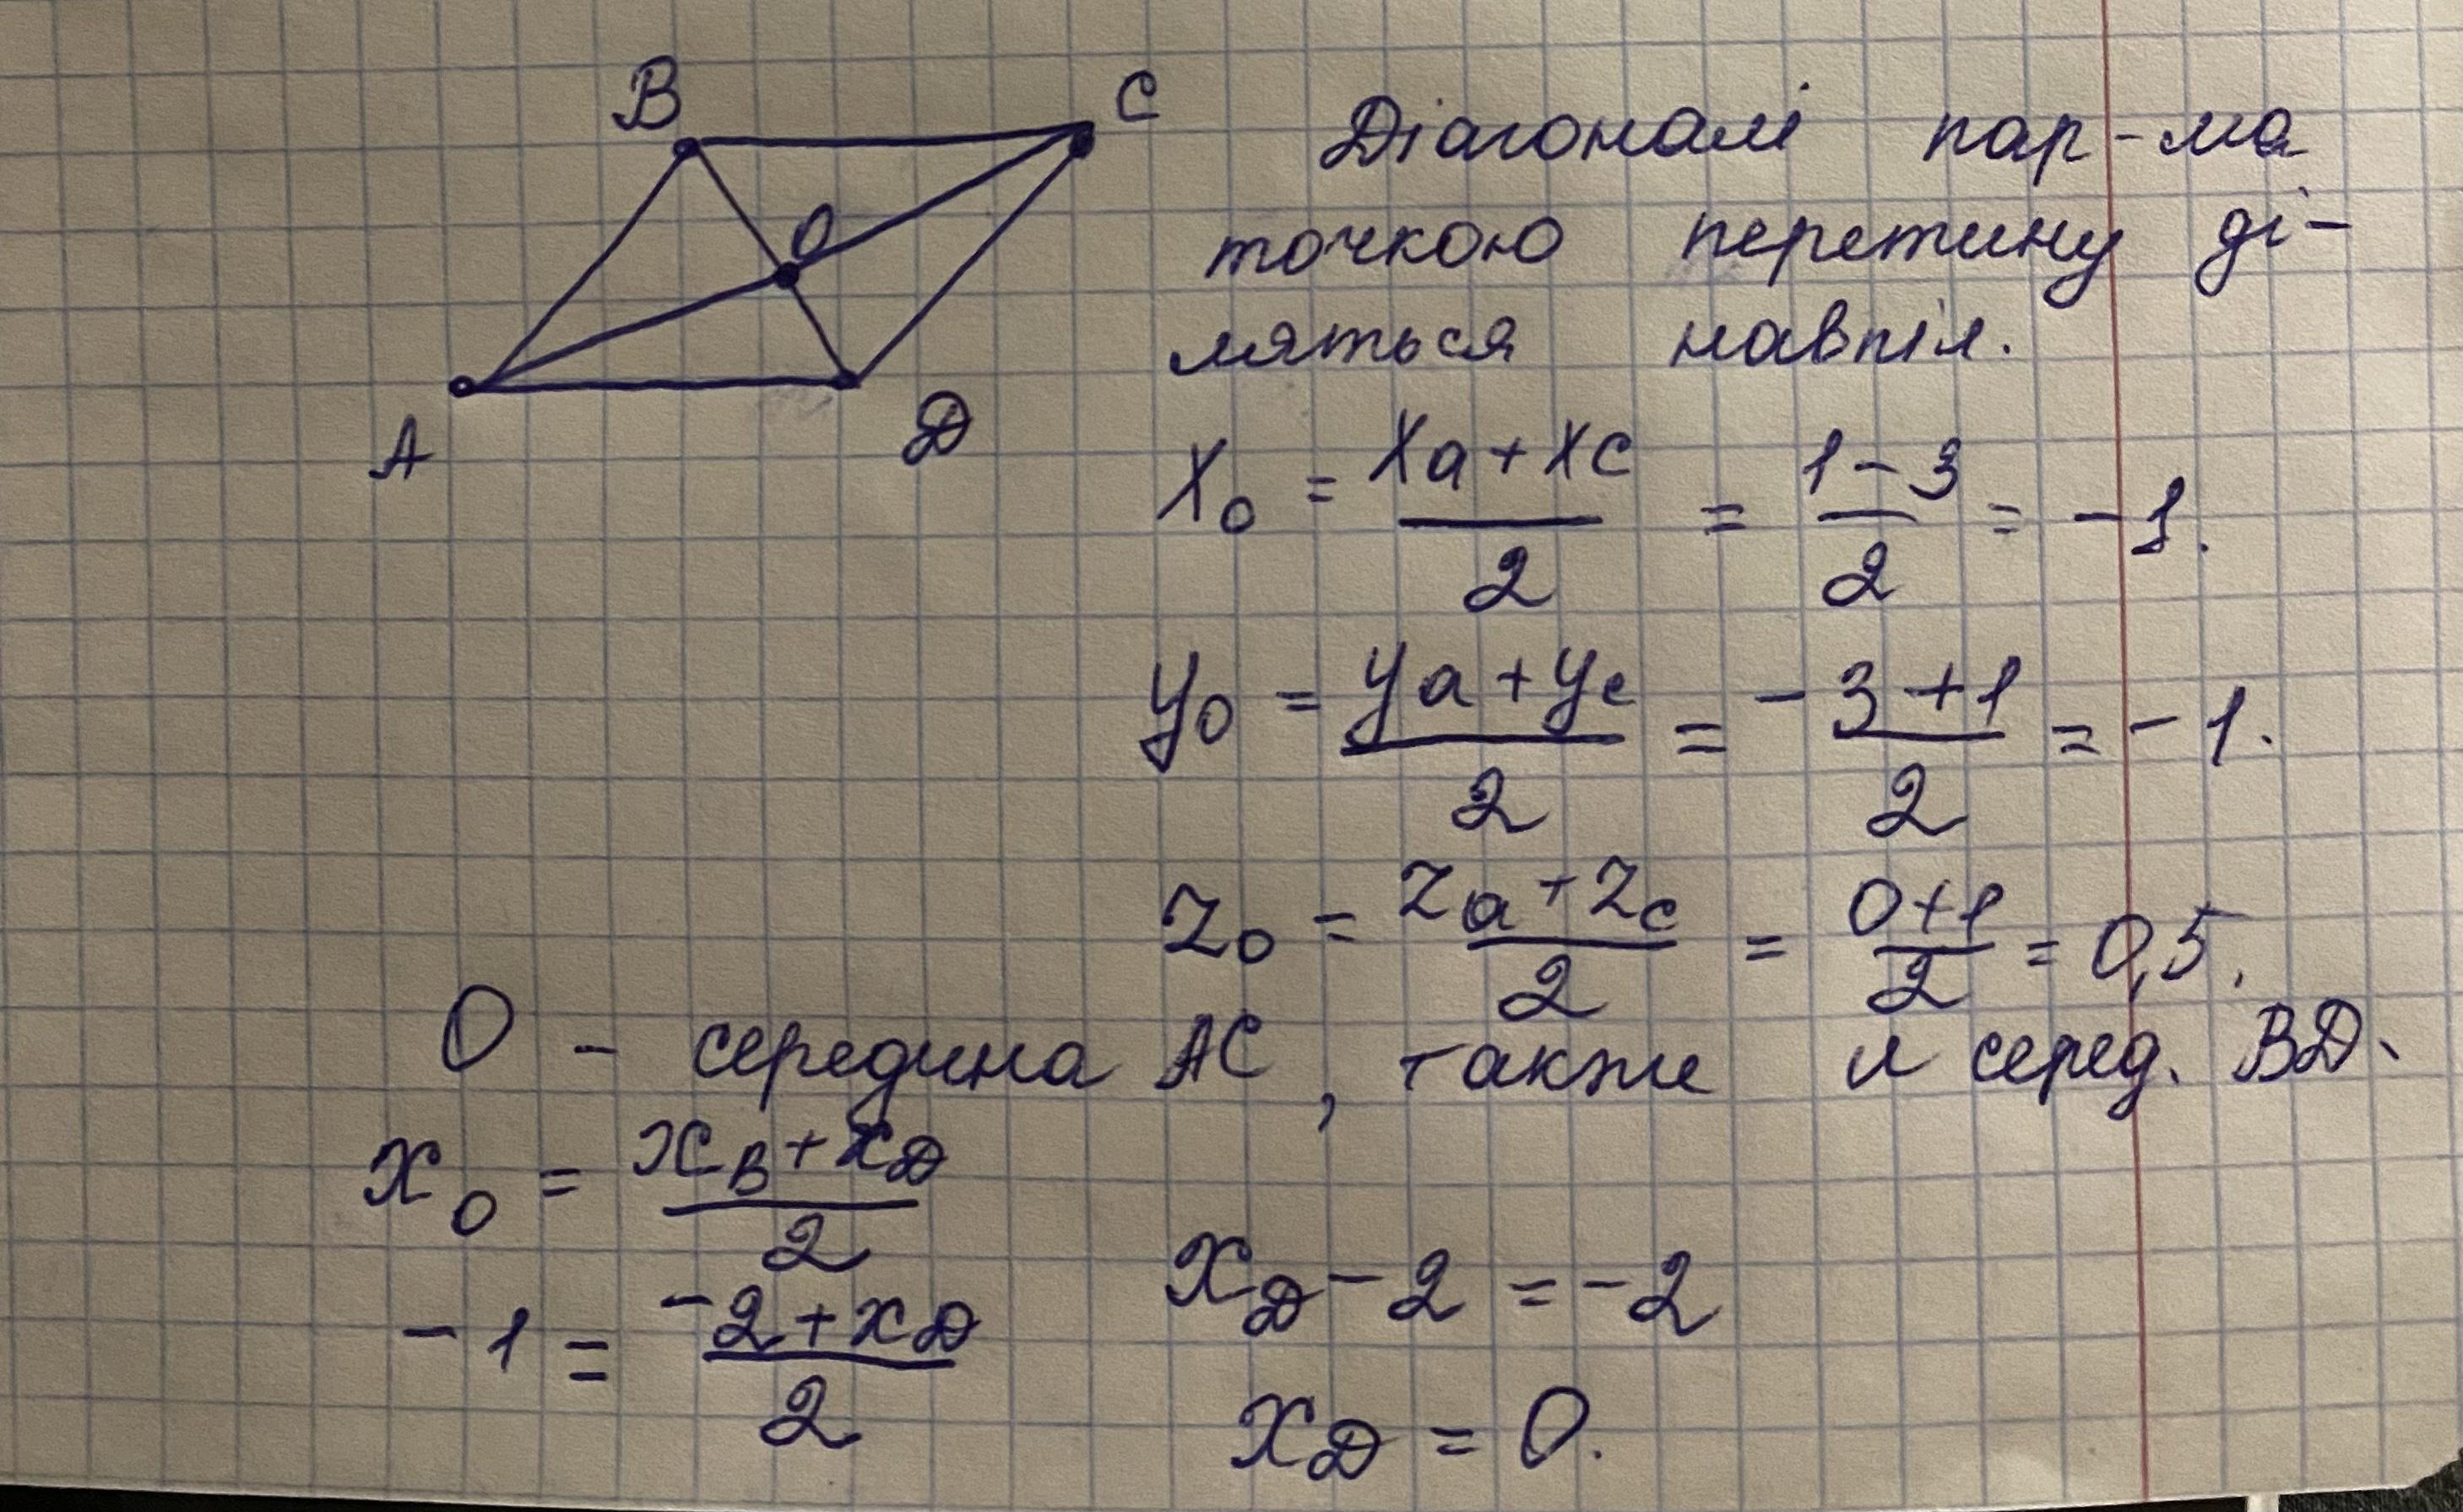 B C
O
A D
Діагоналі пар-ма
точкою перетину ді-
ляться навпіл.
X₀ = (Xa + Xc)/2 = (1 - 3)/2 = -1.
y₀ = (ya + yc)/2 = (-3 + 1)/2 = -1.
Z₀ = (Za + Zc)/2 = (0 + 1)/2 = 0,5.
O - середина AC, также и серед. BD.
x₀ = (x_B + x_D)/2
-1 = (-2 + x_D)/2
x_D - 2 = -2
x_D = 0.